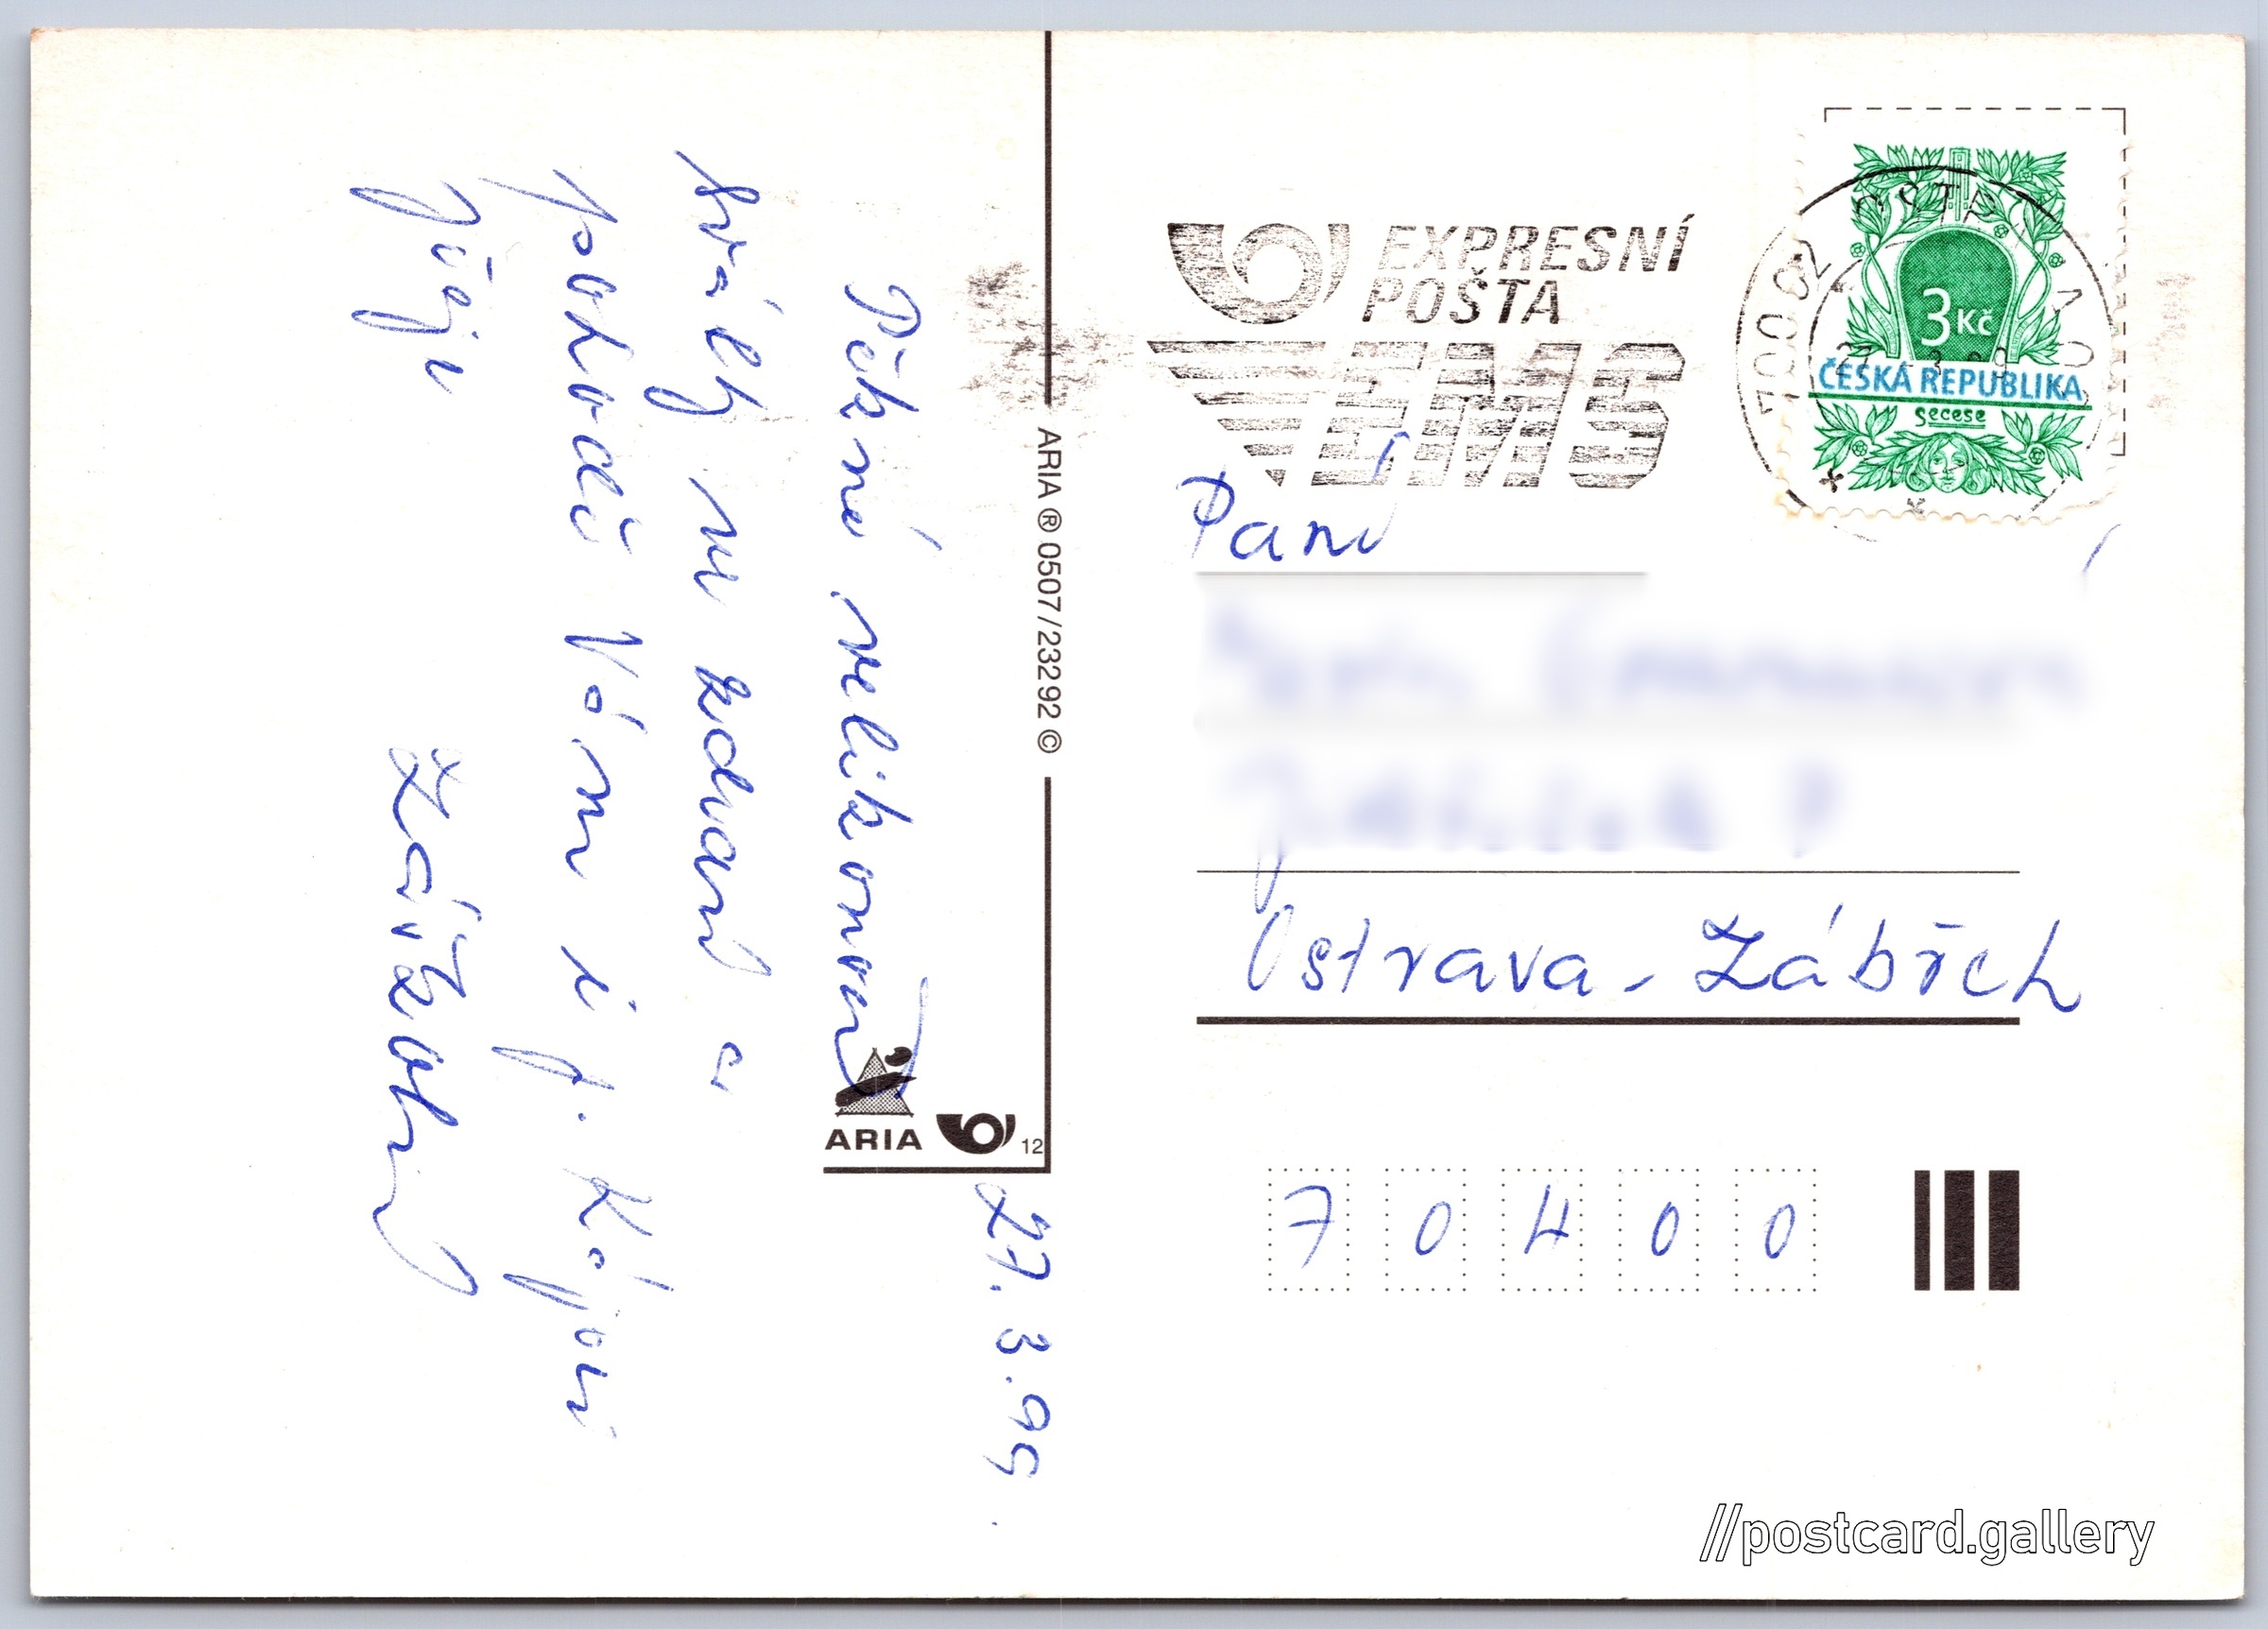 27. 3. 99.
Pěkné velikonoční
svátky ve zdraví a
pohodě Vám i p. Kájovi
přeje
ARIA ® 0507/23292 ©
ARIA
12
EXPRESNÍ
POŠTA
EMS
3 Kč
ČESKÁ REPUBLIKA
secese
Paní
Ostrava - Zábřeh
7 0 4 0 0
//postcard.gallery